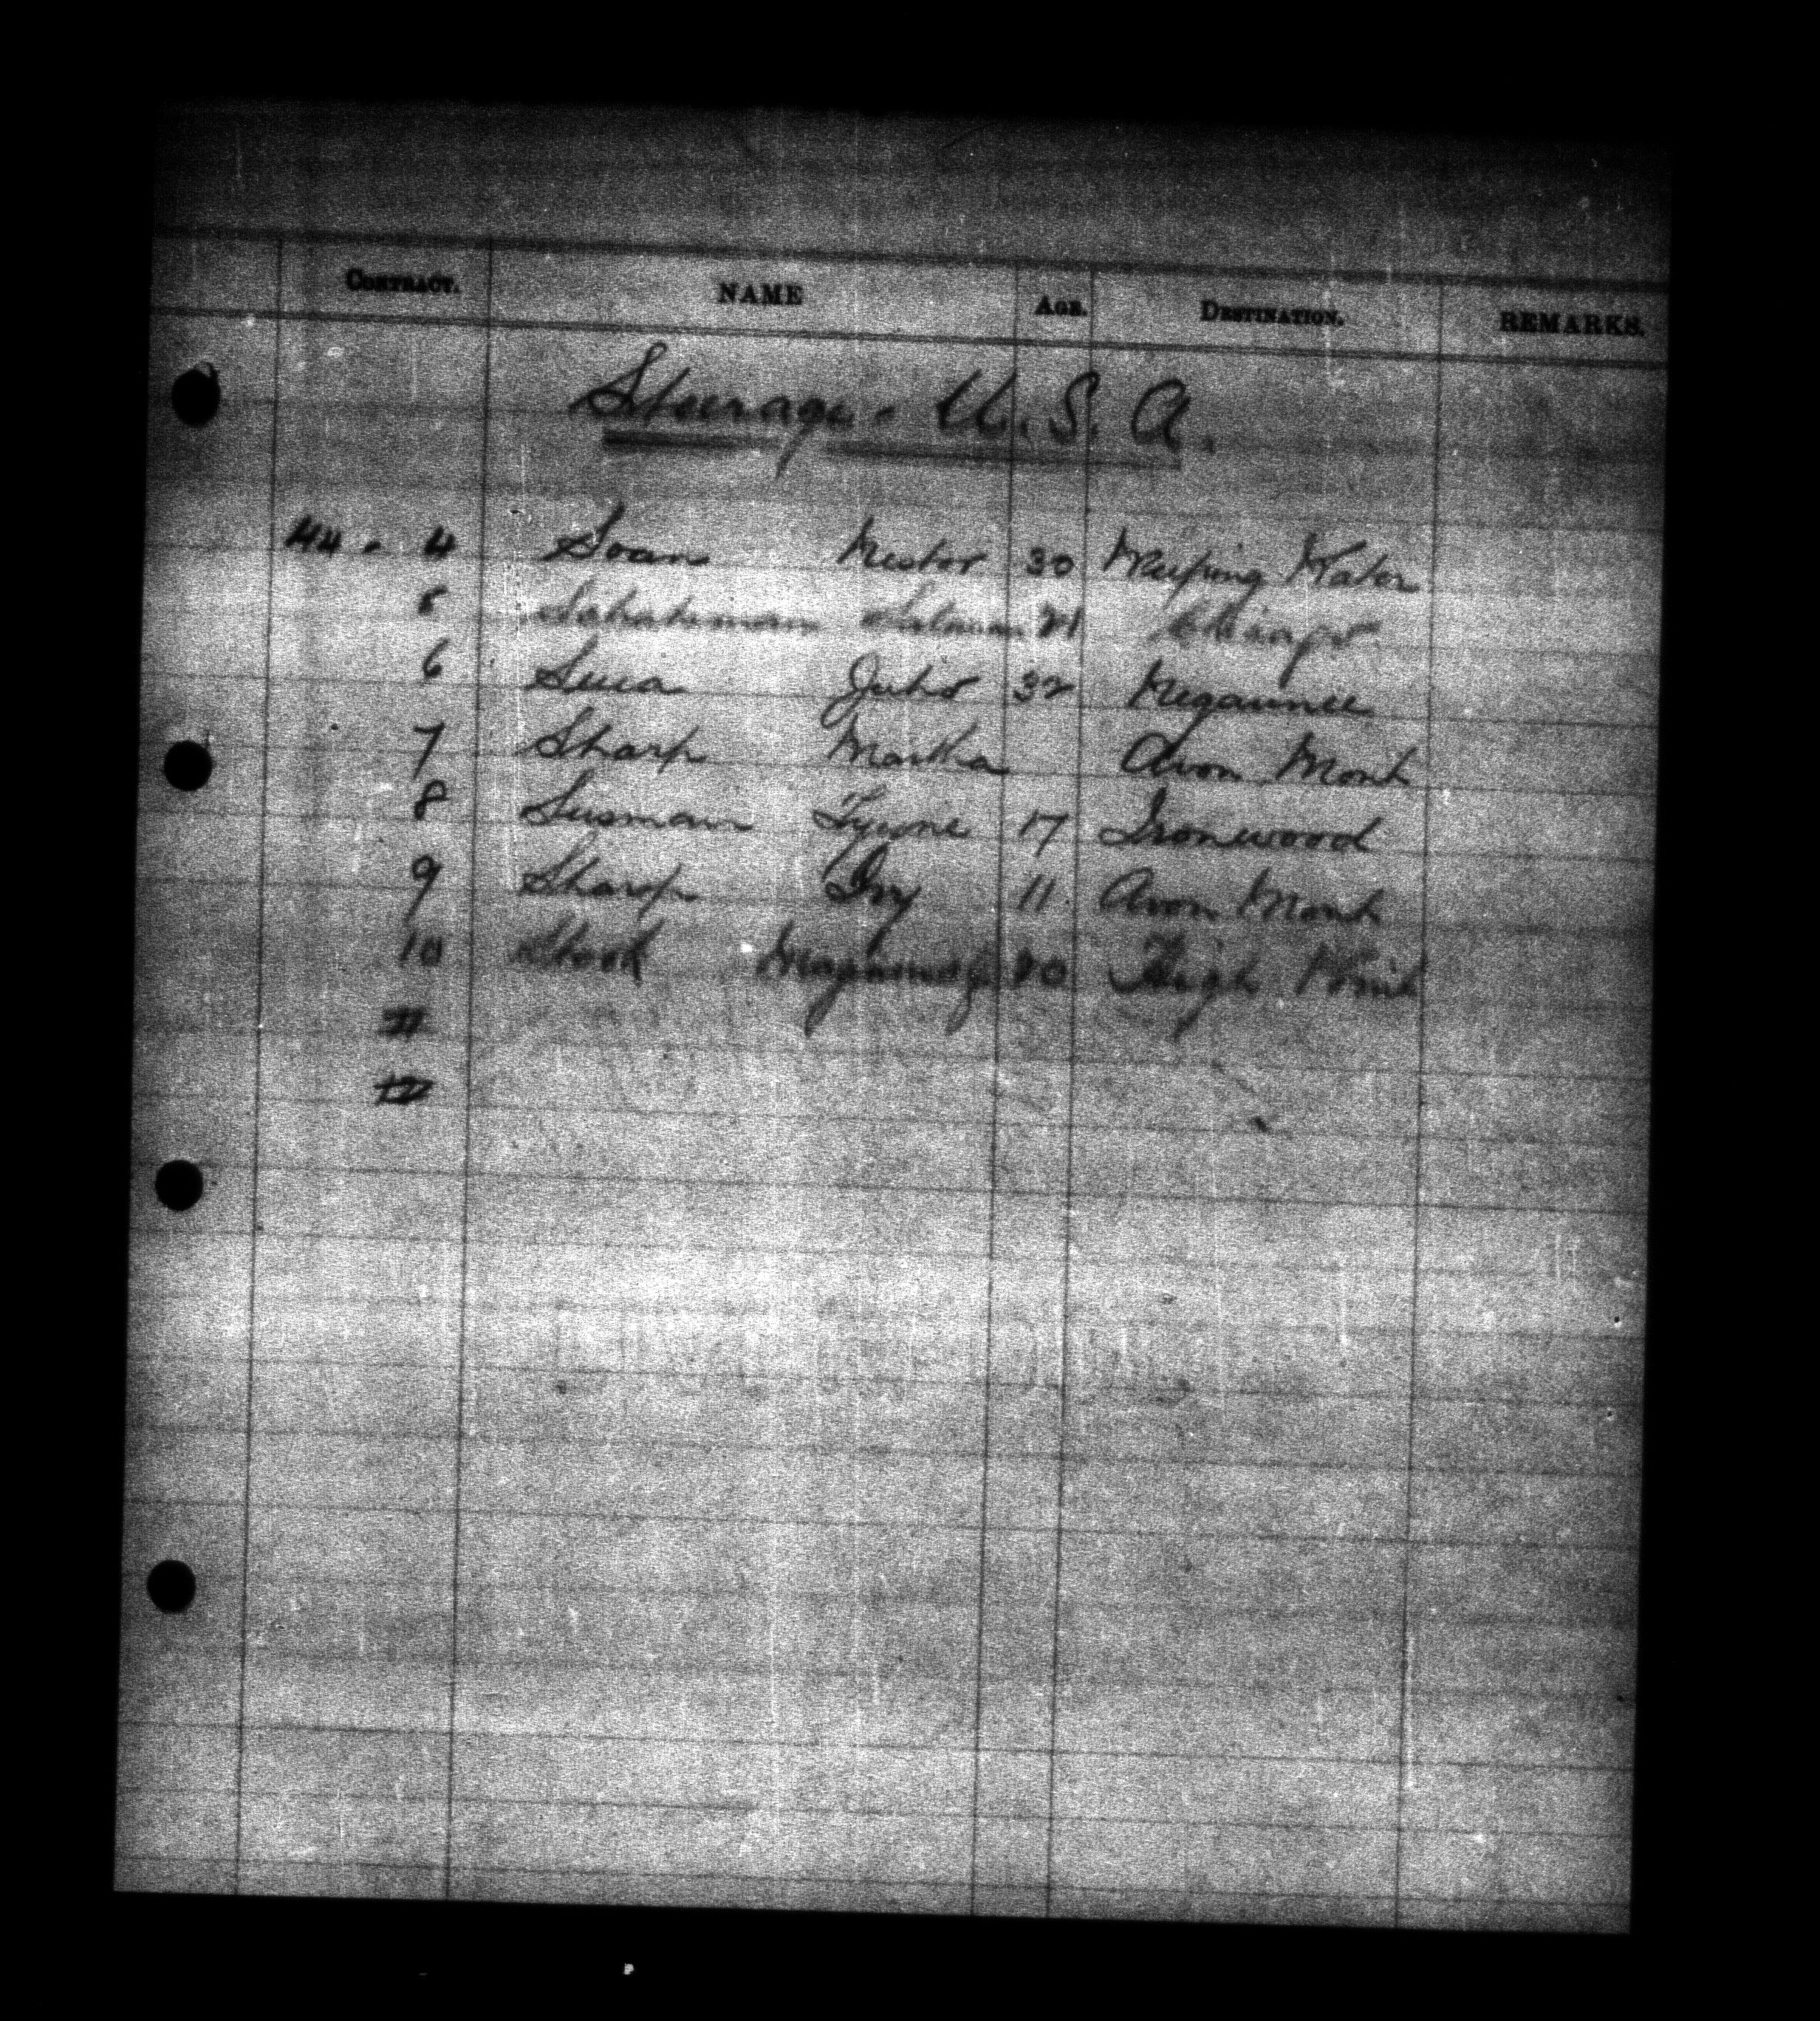 CONTRACT. NAME AGE. DESTINATION. REMARKS.
Steerage. U.S.A.
44 - 4 Soan Nestor 30 Weeping Water
5 21 Chicago
6 Juho 32 Negaunee
7 Sharp Martha Avon Mont
8 Susman Tyyne 17 Ironwood
9 Sharp Ivy 11 Avon Mont
10 High Point
11
12